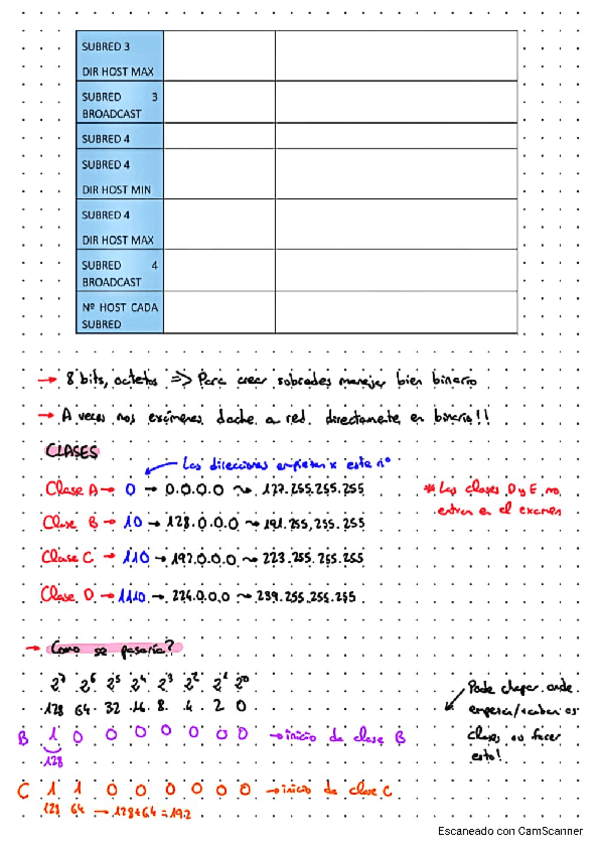 SUBRED 3
DIR HOST MAX
SUBRED 3
BROADCAST
SUBRED 4
SUBRED 4
DIR HOST MIN
SUBRED 4
DIR HOST MAX
SUBRED 4
BROADCAST
Nº HOST CADA
SUBRED
→ 8 bits, octetos => Para crear subredes manejar bien binario
→ A veces nos exámenes dache a red directamente en binario!!
CLASES
Las direcciones empiezan x este nº
Clase A → 0 → 0.0.0.0 ~ 127.255.255.255
* Las clases D y E no
entran en el examen
Clase B → 10 → 128.0.0.0 ~ 191.255.255.255
Clase C → 110 → 192.0.0.0 ~ 223.255.255.255
Clase D → 1110 → 224.0.0.0 ~ 239.255.255.255
→ Como se pasaría?
2⁷ 2⁶ 2⁵ 2⁴ 2³ 2² 2¹ 2⁰
128 64 32 16 8 4 2 0
Pode chegar onde
empeza/acaban as
clases ou facer
esto!
B 1 0 0 0 0 0 0 0 → inicio da clase B
128
C 1 1 0 0 0 0 0 0 → inicio da clase C
128 64 → 128+64=192
Escaneado con CamScanner